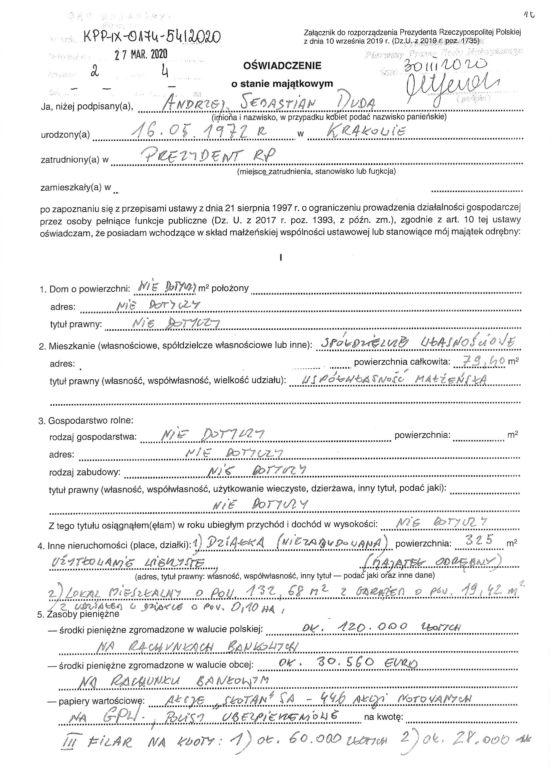 16
KPP-IX-0174-54/2020
Załącznik do rozporządzenia Prezydenta Rzeczypospolitej Polskiej
z dnia 10 września 2019 r. (Dz.U. z 2019 r. poz. 1735)
27 MAR. 2020
30 III 2020
2 4
OŚWIADCZENIE
o stanie majątkowym
Ja, niżej podpisany(a), ANDRZEJ SEBASTIAN DUDA
(imiona i nazwisko, w przypadku kobiet podać nazwisko panieńskie)
urodzony(a) 16.05.1972 R w KRAKOWIE
zatrudniony(a) w PREZYDENT RP
(miejsce zatrudnienia, stanowisko lub funkcja)
zamieszkały(a) w
po zapoznaniu się z przepisami ustawy z dnia 21 sierpnia 1997 r. o ograniczeniu prowadzenia działalności gospodarczej
przez osoby pełniące funkcje publiczne (Dz. U. z 2017 r. poz. 1393, z późn. zm.), zgodnie z art. 10 tej ustawy
oświadczam, że posiadam wchodzące w skład małżeńskiej wspólności ustawowej lub stanowiące mój majątek odrębny:
I
1. Dom o powierzchni: NIE DOTYCZY m² położony
adres: NIE DOTYCZY
tytuł prawny: NIE DOTYCZY
2. Mieszkanie (własnościowe, spółdzielcze własnościowe lub inne): SPÓŁDZIELCZE WŁASNOŚCIOWE
adres: powierzchnia całkowita: 79,40 m²
tytuł prawny (własność, współwłasność, wielkość udziału): WSPÓŁWŁASNOŚĆ MAŁŻEŃSKA
3. Gospodarstwo rolne:
rodzaj gospodarstwa: NIE DOTYCZY powierzchnia: m²
adres: NIE DOTYCZY
rodzaj zabudowy: NIE DOTYCZY
tytuł prawny (własność, współwłasność, użytkowanie wieczyste, dzierżawa, inny tytuł, podać jaki):
NIE DOTYCZY
Z tego tytułu osiągnąłem(ęłam) w roku ubiegłym przychód i dochód w wysokości: NIE DOTYCZY
4. Inne nieruchomości (place, działki): 1) DZIAŁKA (NIEZABUDOWANA) powierzchnia: 325 m²
UŻYTKOWANIE WIECZYSTE (MAJĄTEK ODRĘBNY)
(adres, tytuł prawny: własność, współwłasność, inny tytuł — podać jaki oraz inne dane)
2) LOKAL MIESZKALNY O POW. 132,68 m² Z GARAŻEM O POW. 19,42 m²
(Z UDZIAŁEM W DZIAŁCE O POW. 0,10 HA,
5. Zasoby pieniężne
— środki pieniężne zgromadzone w walucie polskiej: OK. 120.000 ZŁOTYCH
NA RACHUNKACH BANKOWYCH
— środki pieniężne zgromadzone w walucie obcej: OK. 30.560 EURO
NA RACHUNKU BANKOWYM
— papiery wartościowe: AKCJE "SKOTAN" SA - 446 AKCJI NOTOWANYCH
NA GPW., POLISY UBEZPIECZENIOWE na kwotę:
III FILAR NA KWOTY: 1) ok. 60.000 ZŁOTYCH 2) ok. 28.000